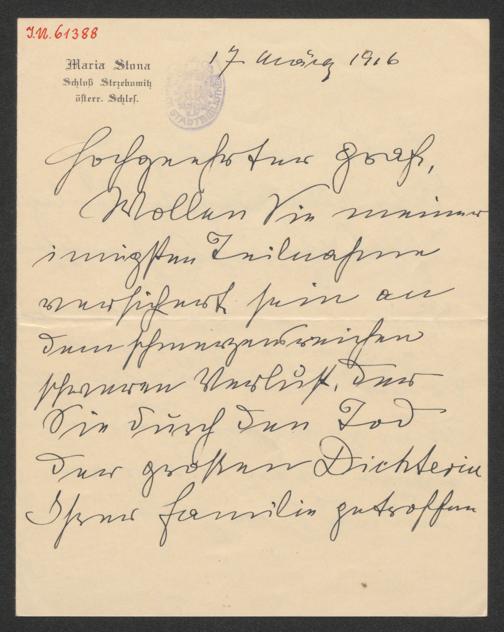 I.N. 61388
Maria Stona
Schloß Strzebowitz
österr. Schles.
STADTBIBLIOTHEK
17 März 1916
Hochgeehrter Graf,
Wollen Sie meiner
innigsten Teilnahme
versichert sein an
dem schmerzensreichen
schweren Verlust, der
Sie durch den Tod
der großen Dichterin
Ihrer Familie getroffen